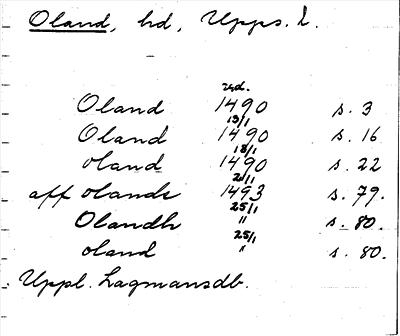 Oland, hd, Upps. l.
Oland 1490 s. 3
13/1
Oland 1490 s. 16
18/1
oland 1490 s. 22
2/11
aff olande 1493 s. 79.
25/1
Olandh " s. 80.
25/1
oland " s. 80.
Uppl. Lagmansdb.